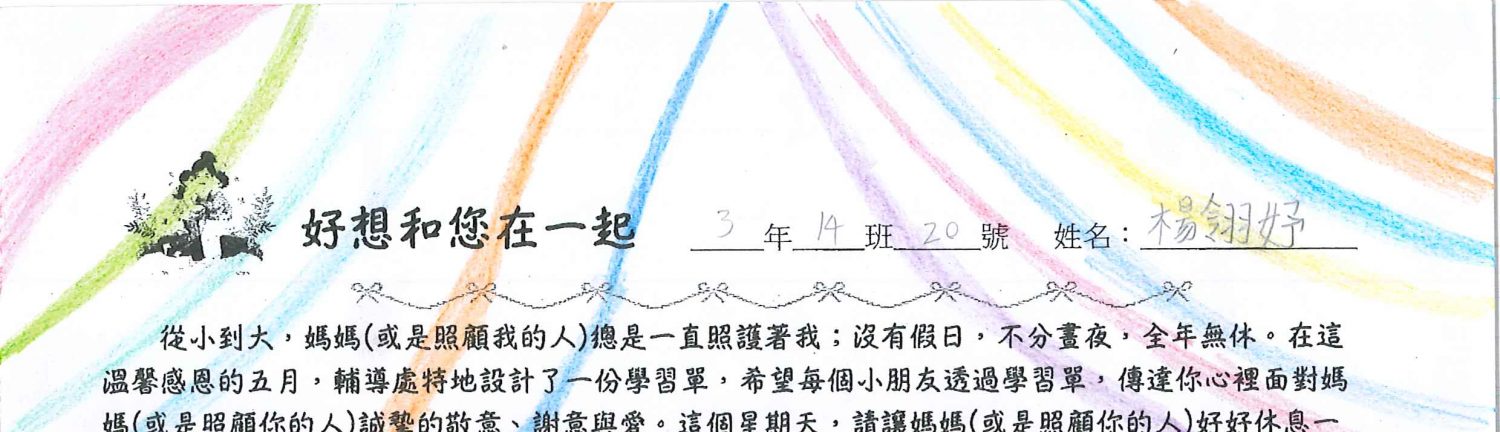 好想和您在一起 3年14班20號 姓名：楊翎妤
從小到大，媽媽(或是照顧我的人)總是一直照護著我；沒有假日，不分晝夜，全年無休。在這
溫馨感恩的五月，輔導處特地設計了一份學習單，希望每個小朋友透過學習單，傳達你心裡面對媽
媽(或是照顧你的人)誠摯的敬意、謝意與愛。這個星期天，請讓媽媽(或是照顧你的人)好好休息一